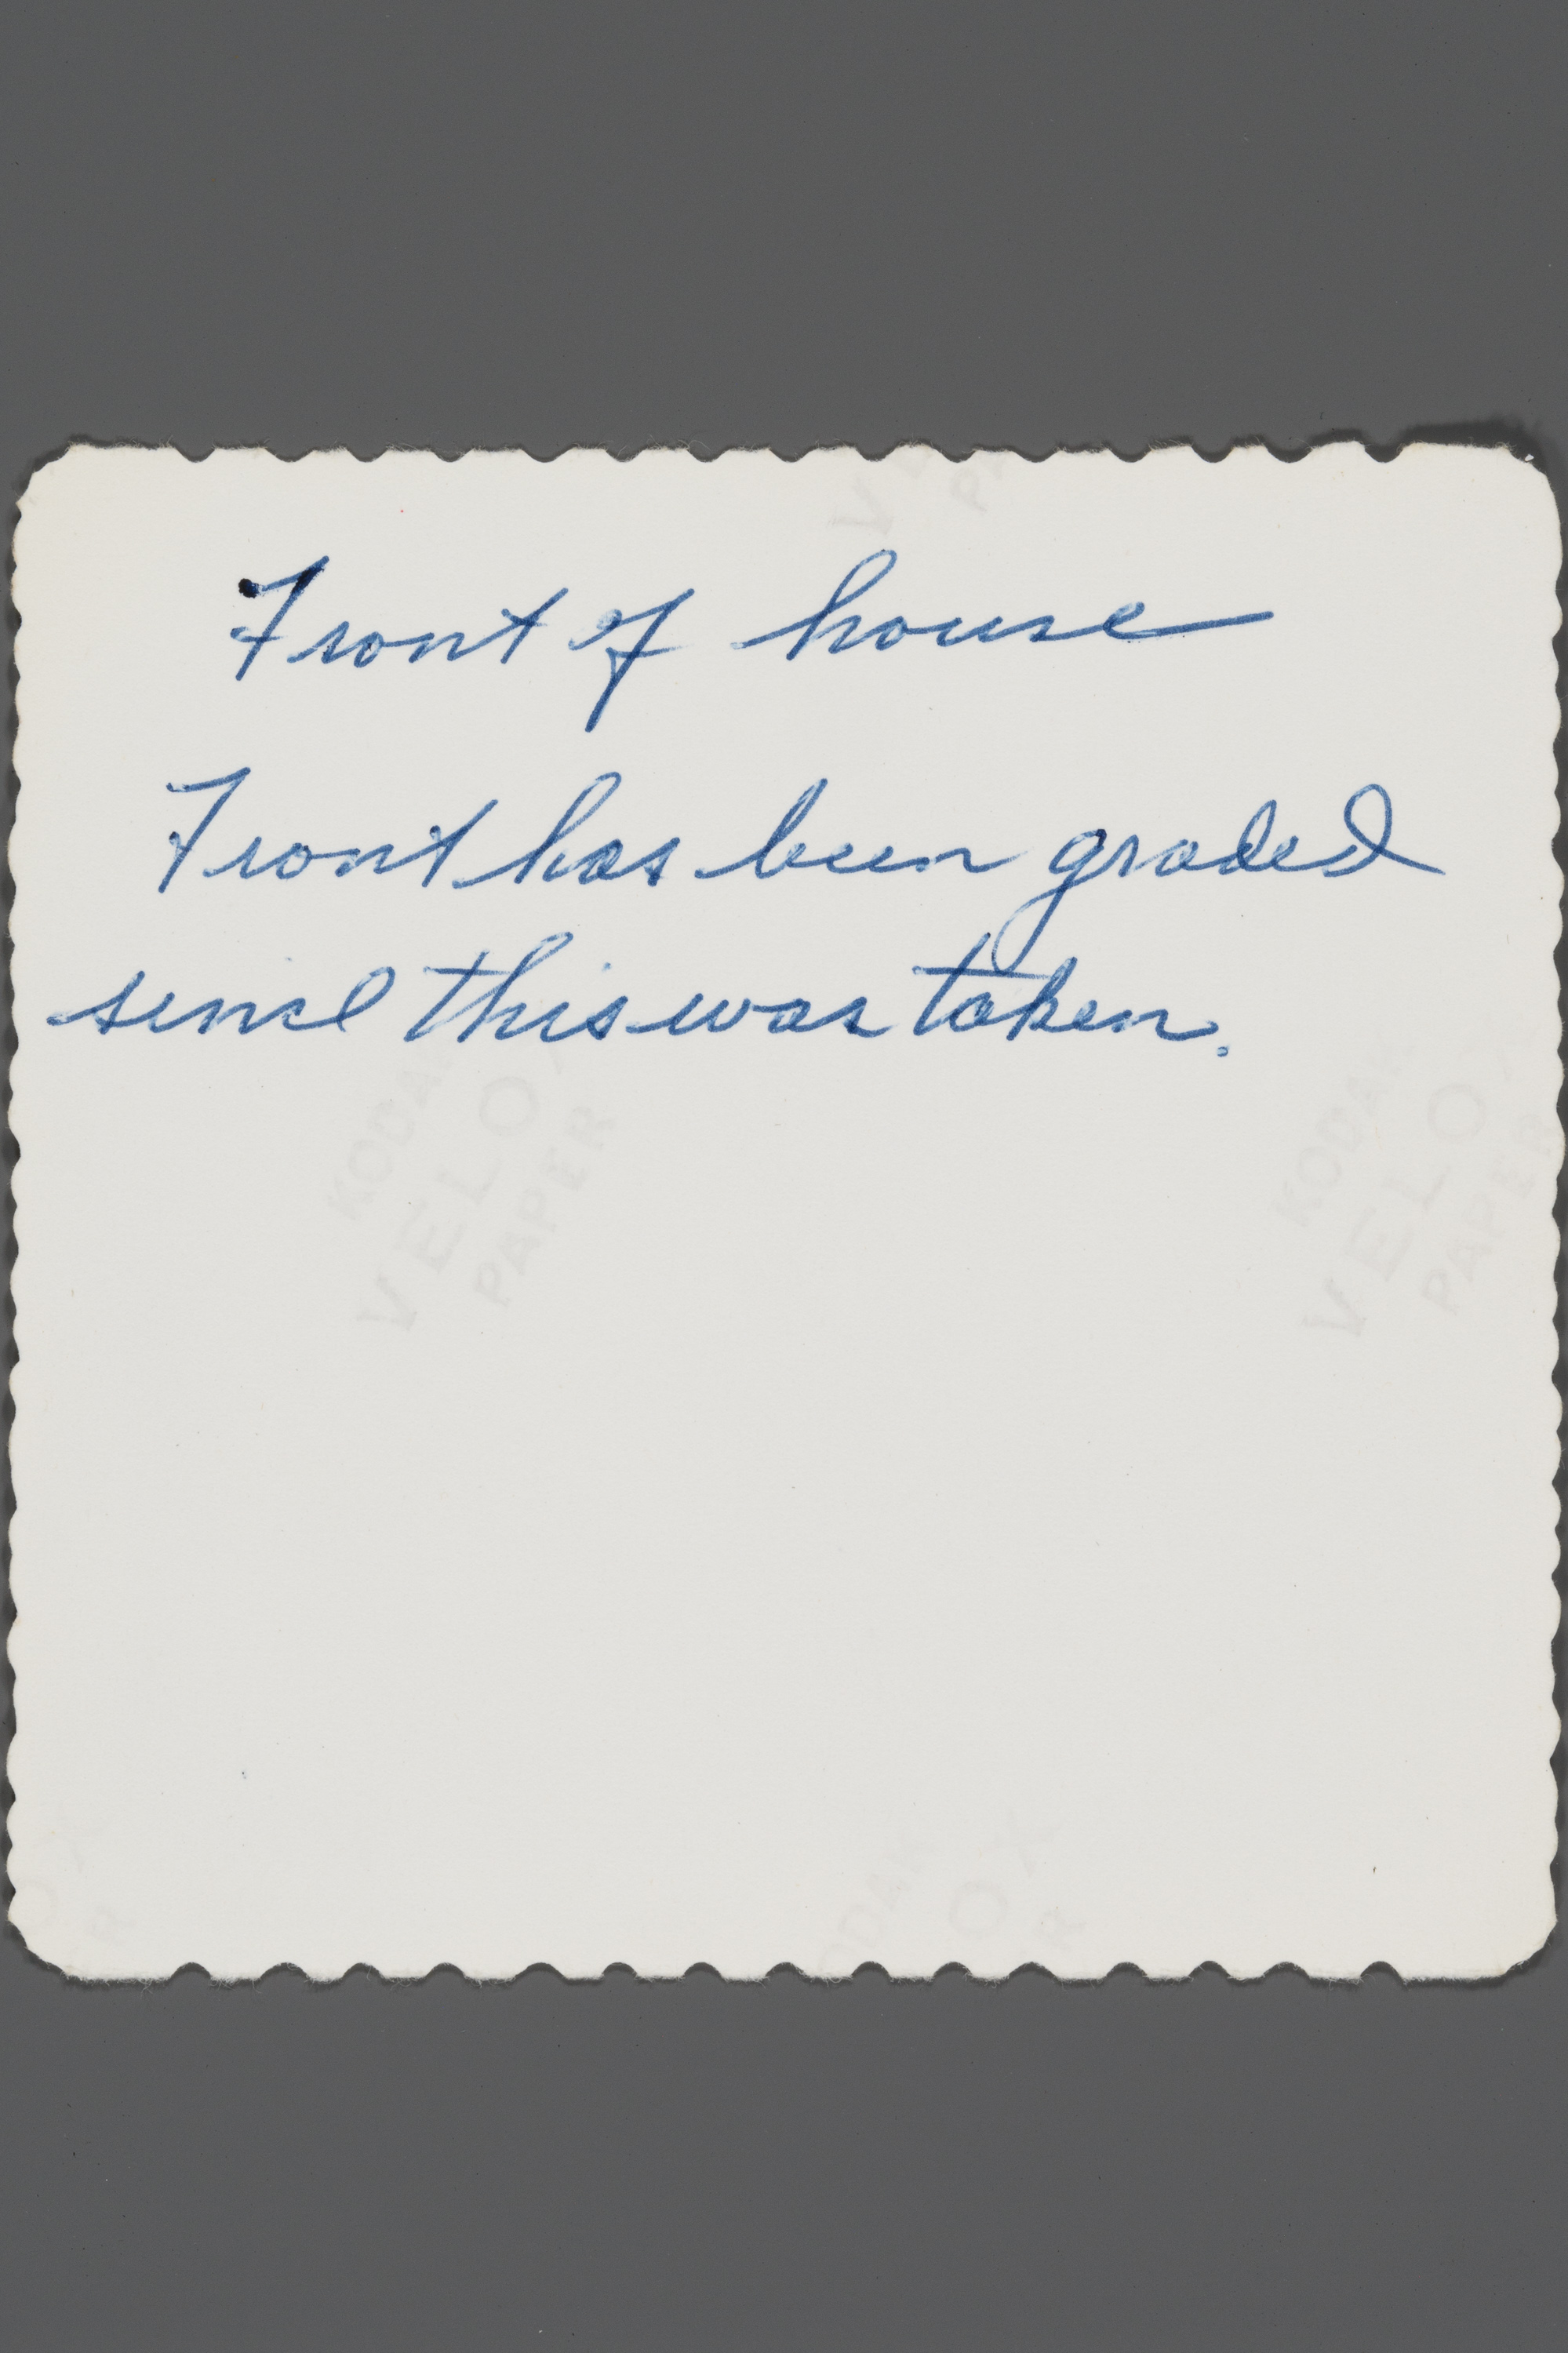 Front of house
Front has been graded
since this was taken.
KODAK
VELOX
PAPER
KODAK
VELOX
PAPER